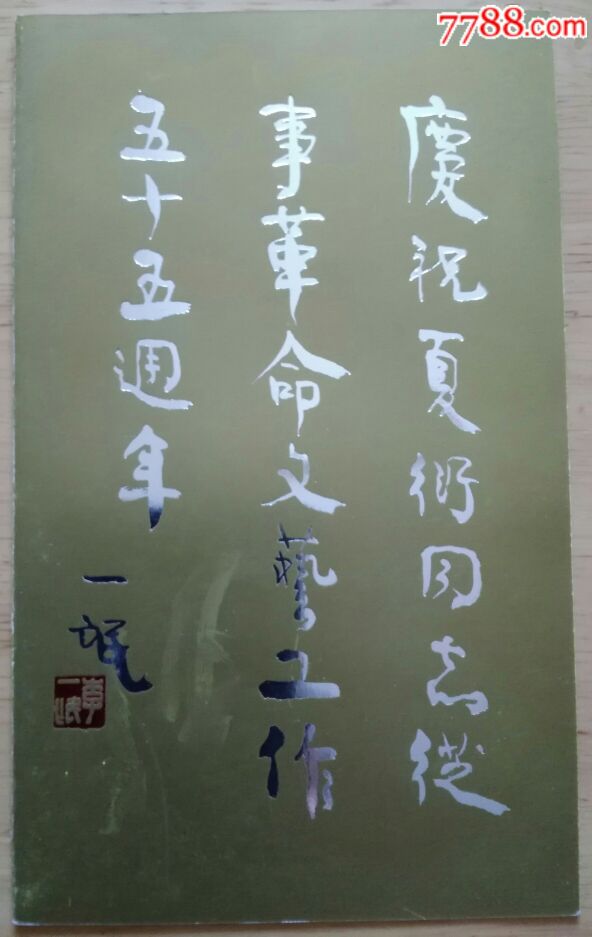 7788.com
慶祝夏衍同志從
事革命文藝工作
五十五週年
一氓
李一氓